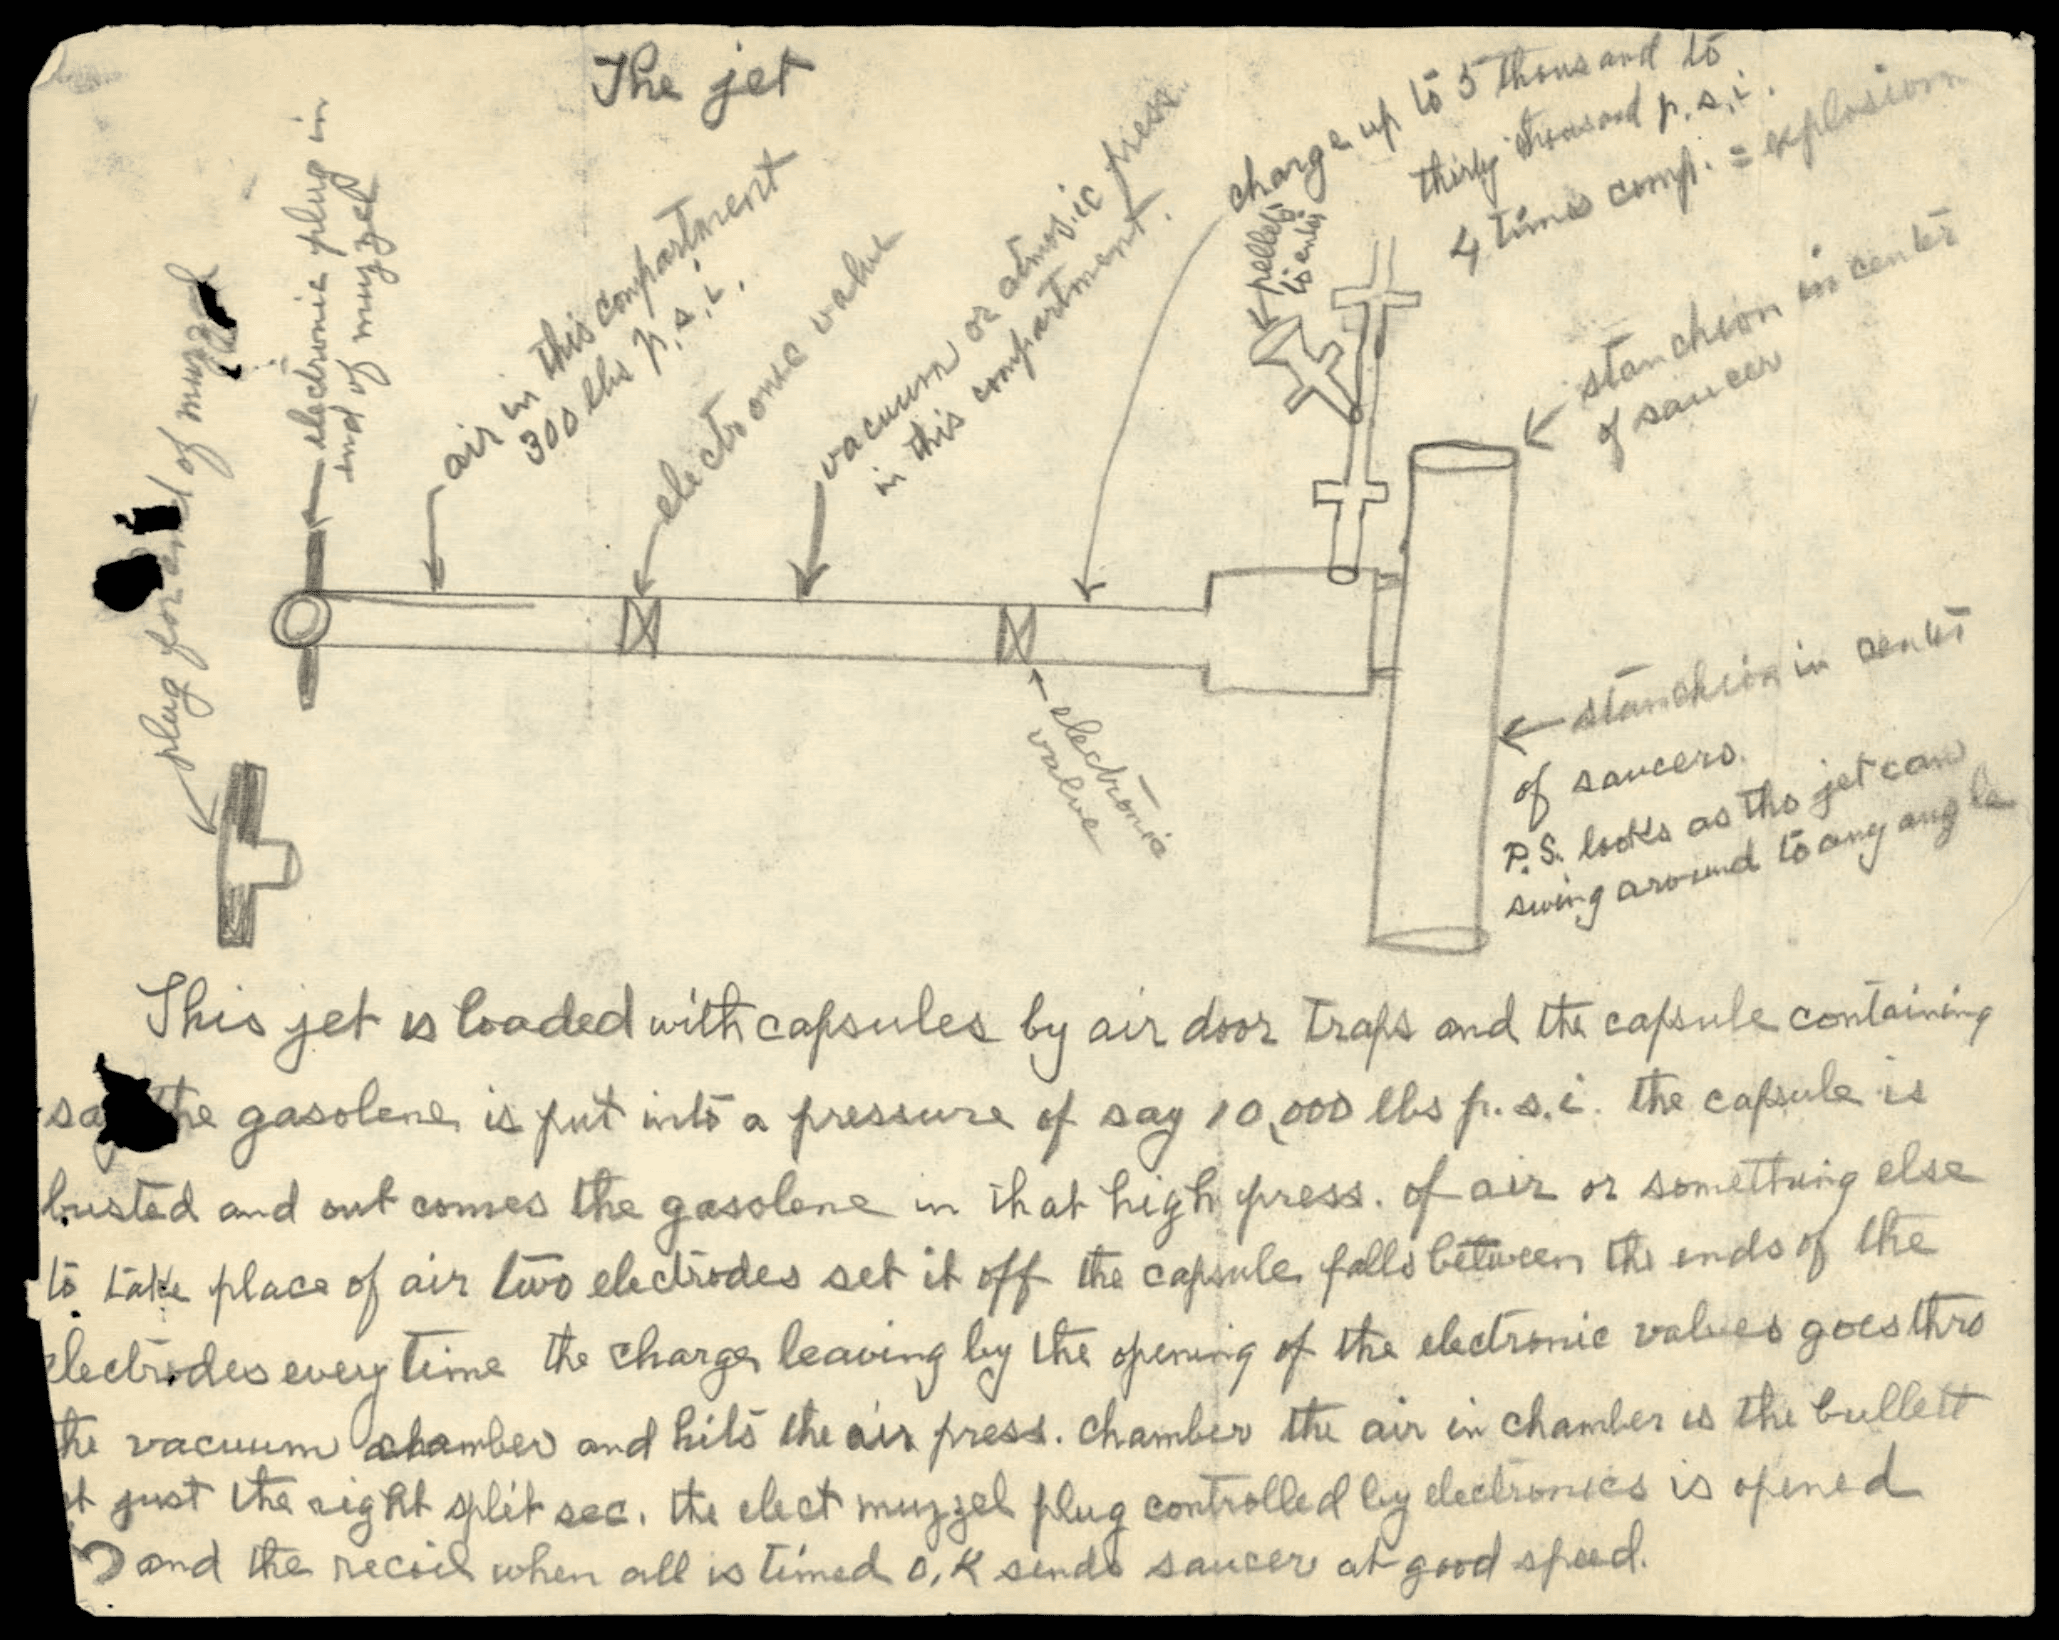 The jet
plug for end of muzzel
electronic plug in
end of muzzel
air in this compartment
300 lbs p.s.i.
electronic valve
vacuum or atmosic press.
in this compartment.
charge up to 5 thousand to
thirty thousand p.s.i.
4 times comp. = explosion
pellets
to enter
stanchion in center
of saucer
electronic
valve
stanchion in center
of saucers.
P.S. looks as tho jet can
swing around to any angle
This jet is loaded with capsules by air door traps and the capsule containing
say the gasolene is put into a pressure of say 10,000 lbs p.s.i. the capsule is
busted and out comes the gasolene in that high press. of air or something else
to take place of air two electrodes set it off the capsule falls between the ends of the
electrodes every time the charge leaving by the opening of the electronic valves goes thro
the vacuum chamber and hits the air press. chamber the air in chamber is the bullett
at just the right split sec. the elect muzzel plug controlled by electronics is opened
and the recoil when all is timed O.K sends saucer at good speed.